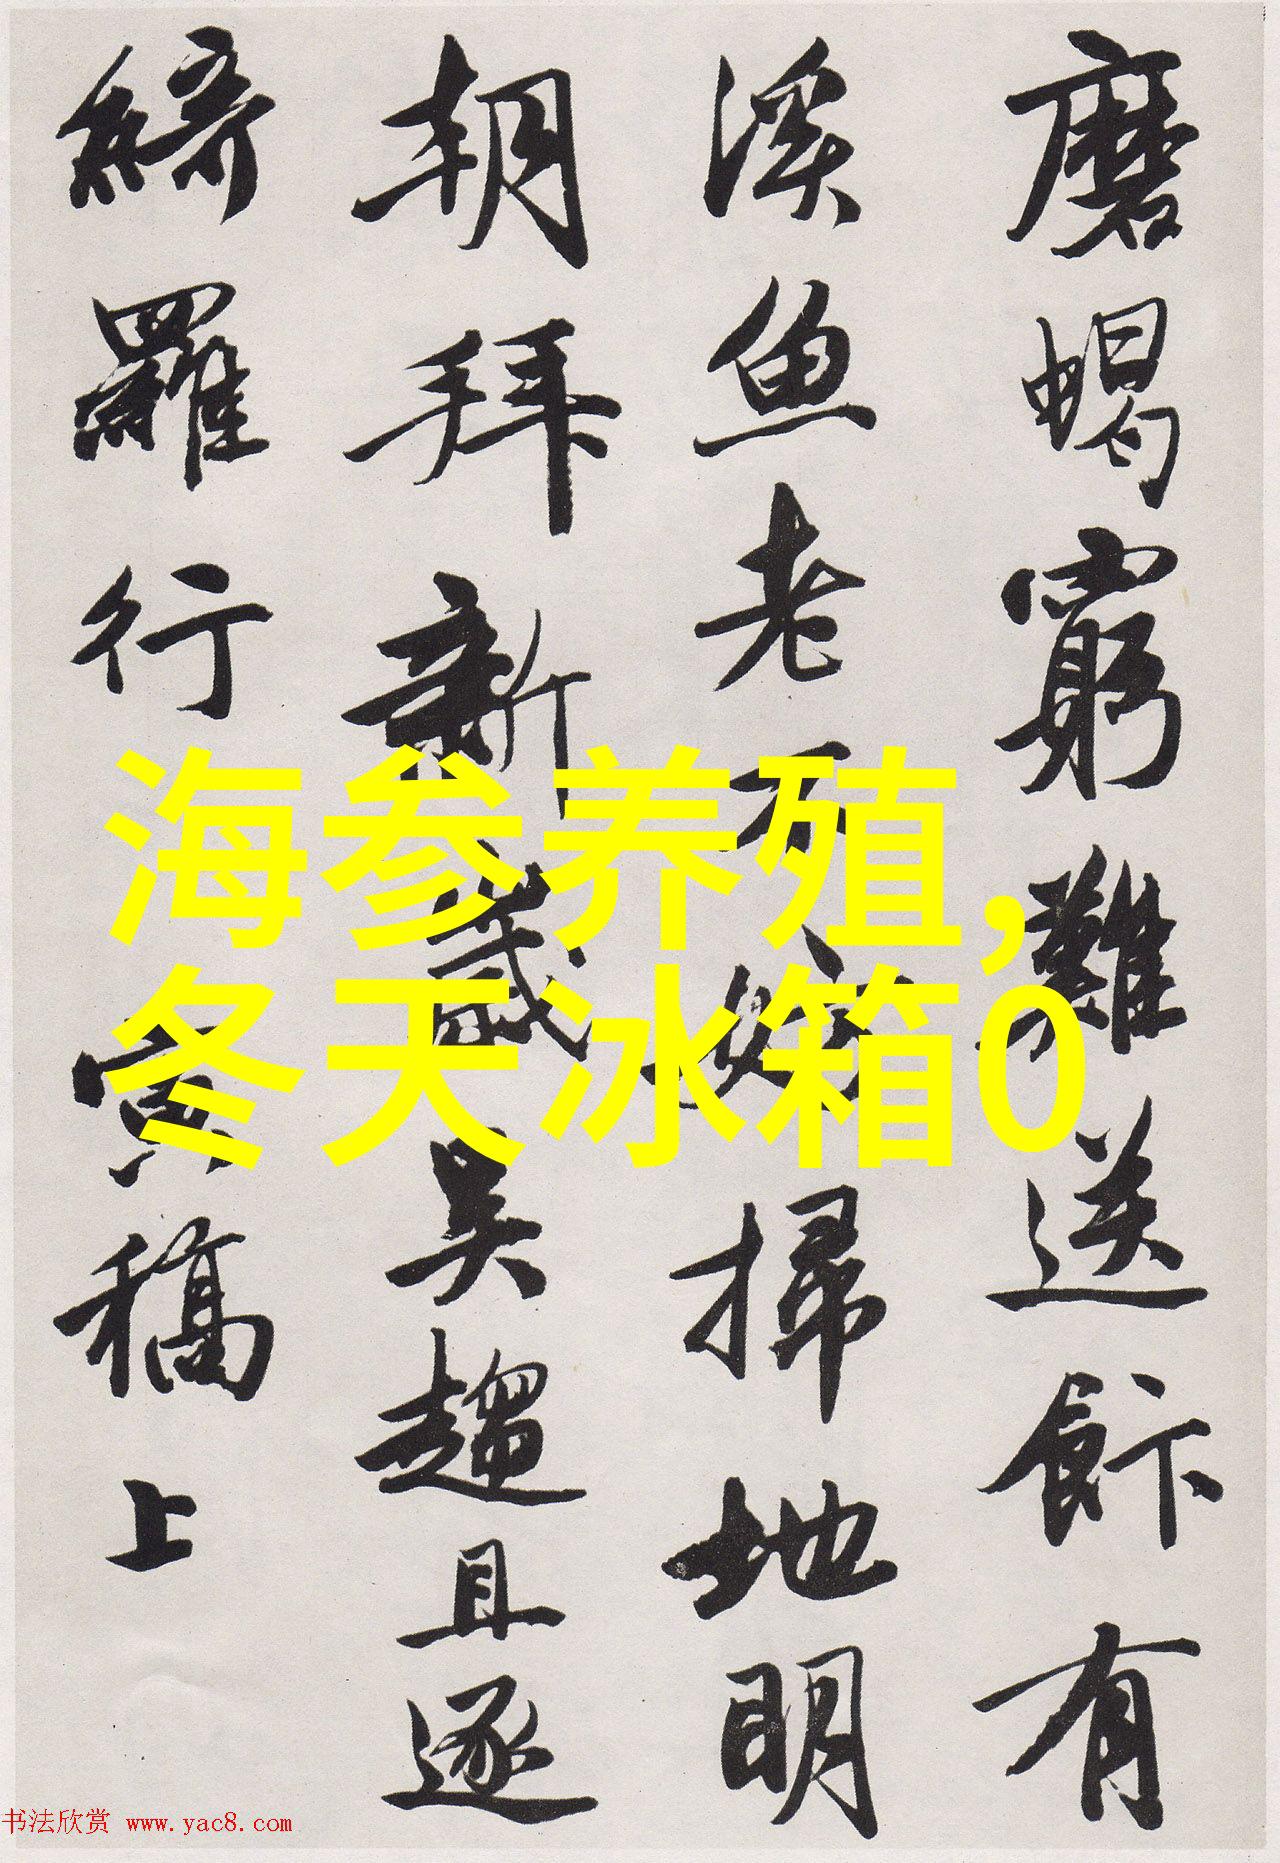 磨蝎窮難送飰有
溪魚老不掃地明
朝拜新歲吳趨且逐
綺羅行寅稿上
海参养殖,
冬天冰箱0
书法欣赏 www.yac8.com